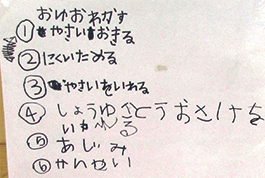 おゆおわかす
①やさいおきる
②にくいためる
③やさいをいれる
④しょうゆ とうおさけを
いれる
⑤あじみ
⑥かんせい